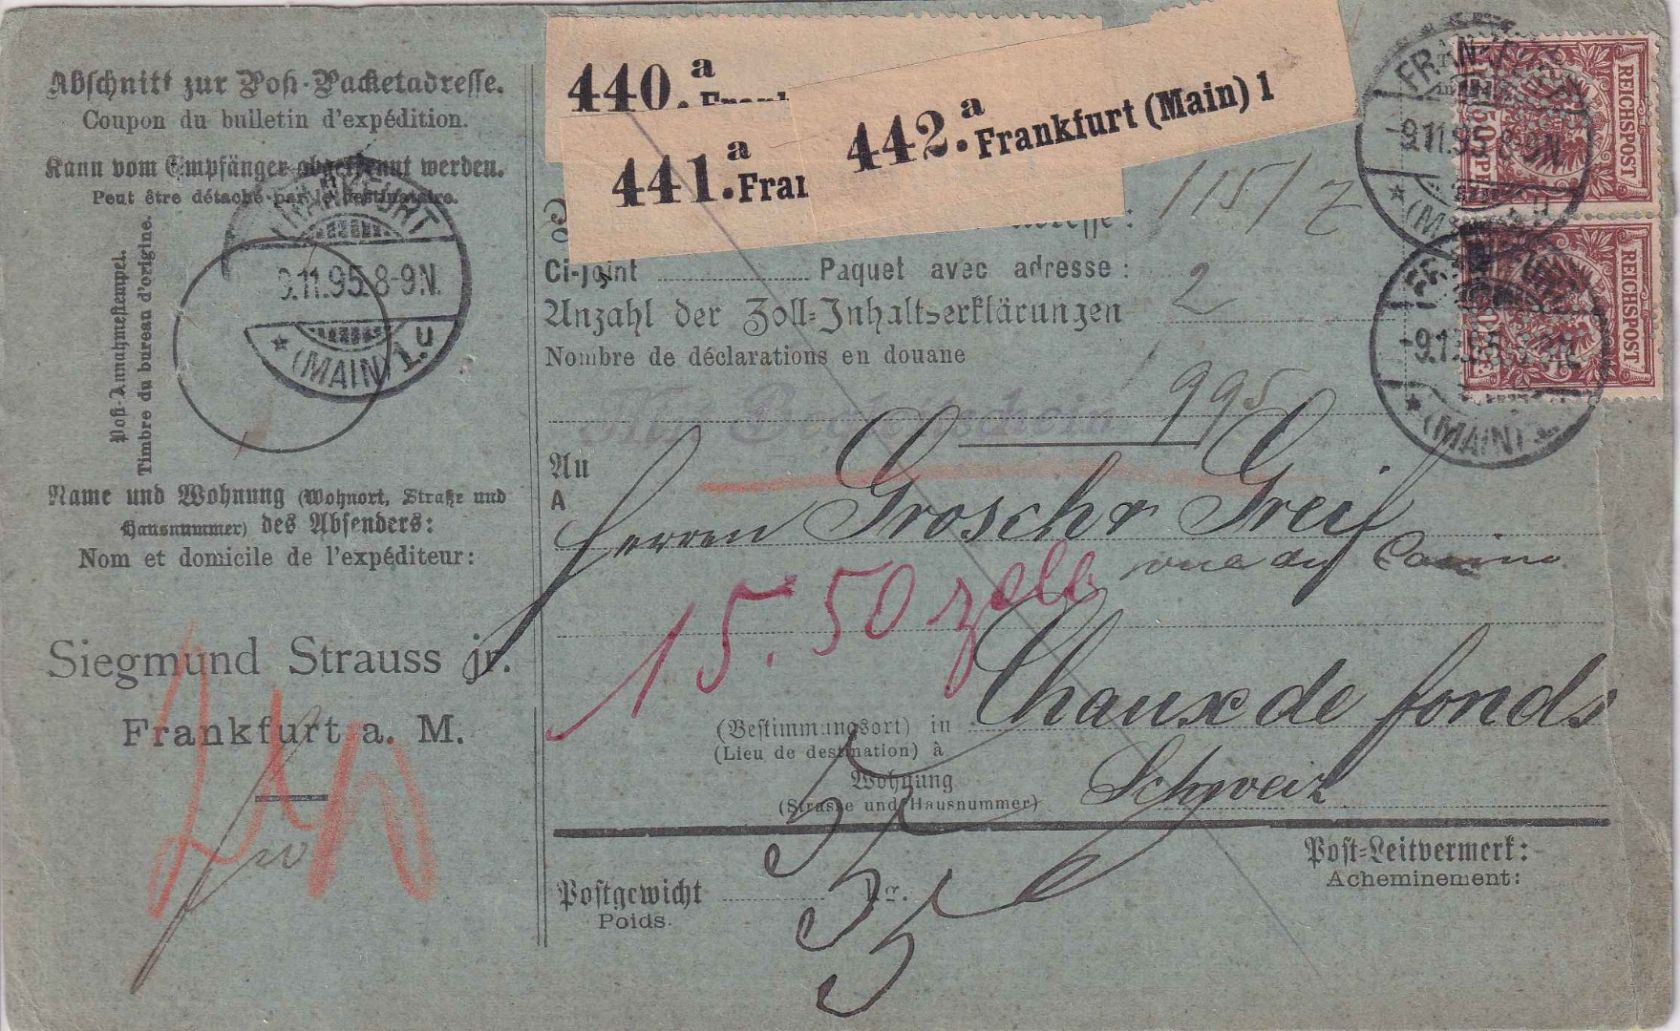 Abschnitt zur Post-Packetadresse.
Coupon du bulletin d'expédition.
Kann vom Empfänger abgetrennt werden.
Peut être détaché par le destinataire.
Post-Annahmestempel.
Timbre du bureau d'origine.
FRANKFURT
9.11.95.8-9N.
* (MAIN) 1.u
Name und Wohnung (Wohnort, Straße und
Hausnummer) des Absenders:
Nom et domicile de l'expéditeur:
Siegmund Strauss jr.
Frankfurt a. M.
440.a
441.a Fran
442.a Frankfurt (Main) 1
Ci-joint Paquet avec adresse:
2
Anzahl der Zoll-Inhaltserklärungen
Nombre de déclarations en douane
995
An
A
Herren Groschr Greif
rue du Casino
15.50
(Bestimmungsort) in
(Lieu de destination) à
Chaux de fonds
Wohnung
(Strasse und Hausnummer)
Schweiz
Post-Leitvermerk:
Acheminement:
Postgewicht
Poids.
Kg.
5
5
5
FRANKFURT
-9.11.95.8-9N.
* (MAIN)
REICHSPOST
50 PF
REICHSPOST
* (MAIN)